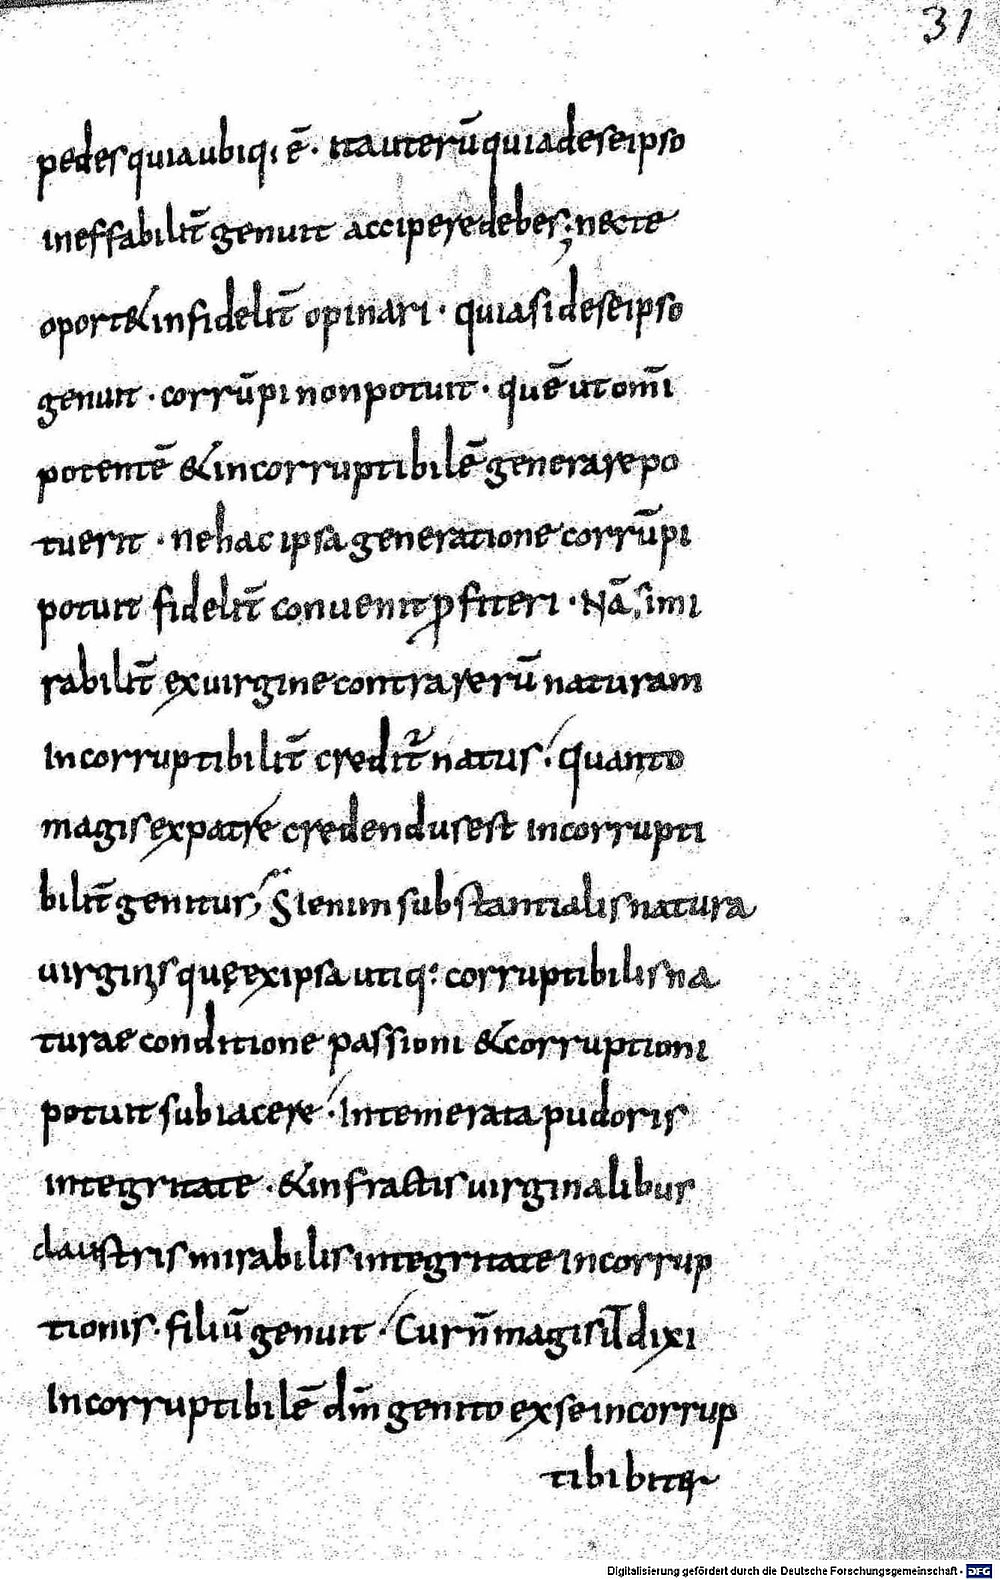 31
pedes quia ubiq; ē · Ita uterū quia de se ipso
ineffabilit̄ genuit accipere debes; nec te
oport& infidelit̄ opinari · quia si de se ipso
genuit · corrūpi non potuit · quē ut om̄i
potentē & incorruptibilē generare po
tuerit · ne hac ipsa generatione corrūpi
potuit fidelit̄ conuenit ꝓfiteri · Nā si mi
rabilit̄ ex uirgine contra rerū naturam
Incorruptibilit̄ credit̄ natus · quanto
magis ex patre credendus est incorrupti
bilit̄ genitus; Si enim substantialis natura
uirginis quę ex ipsa utiq; corruptibilis na
turae conditione passioni & corruptioni
potuit subiacere · Intemerata pudoris
integritate · & infractis uirginalibus
claustris mirabilis integritate incorrup
tionis · filiū genuit · Cur n̄ magis
dixi
Incorruptibilē dm̄ genito ex se incorrup
Digitalisierung gefördert durch die Deutsche Forschungsgemeinschaft - DFG